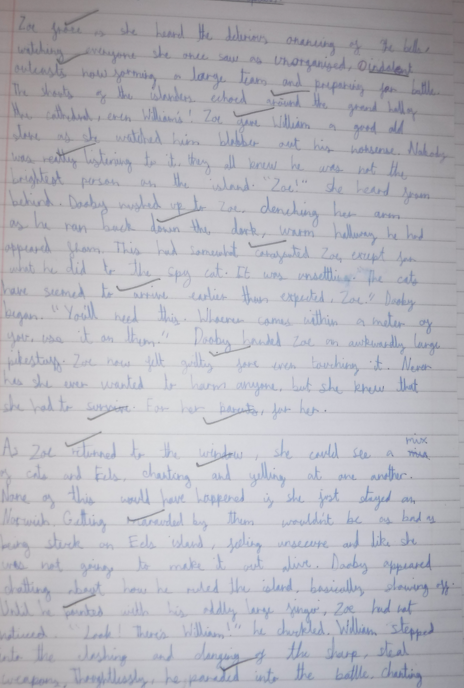 Zoe froze as she heard the delirious of the bells,
watching everyone she once saw as unorganised, indolent
outcasts now forming a large team and preparing for battle.
The shouts of the islanders echoed around the grand hallway
the cathedral, even Williams! Zoe gave William a good old
stare as she watched him blabber out his nonsense. Nobody
was really listening to it, they all knew he was not the
brightest person on the island. "Zoe!" she heard from
behind. Danby rushed up to Zoe, clenching her arm
as he ran back down the dark, warm hallway he had
appeared from. This had somewhat Zoe, except for
what he did to the spy cat. It was unsettling. "The cats
have seemed to arrive earlier than expected, Zoe." Danby
began. "You'll need this. Whoever comes within a meter of
you, use it on them." Danby handed Zoe an awkwardly large
pikestaff. Zoe now felt guilty for even touching it. Never
has she even wanted to harm anyone, but she knew that
she had to survive. For her parents, for her.
As Zoe returned to the window, she could see a mix
of cats and Eels, chanting and yelling at one another.
None of this would have happened if she just stayed in
Norwich. Getting by them wouldn't be as bad as
being stuck on Eels island, feeling unsecure and like she
was not going to make it out alive. Danby appeared
chatting about how he ruled the island, basically showing off.
Until he pointed with his oddly large finger, Zoe had not
noticed. "Look! There's William!" he chuckled. William stepped
into the clashing and clanging of the sharp, steal
weapons. Thoughtlessly, he paraded into the battle, chanting